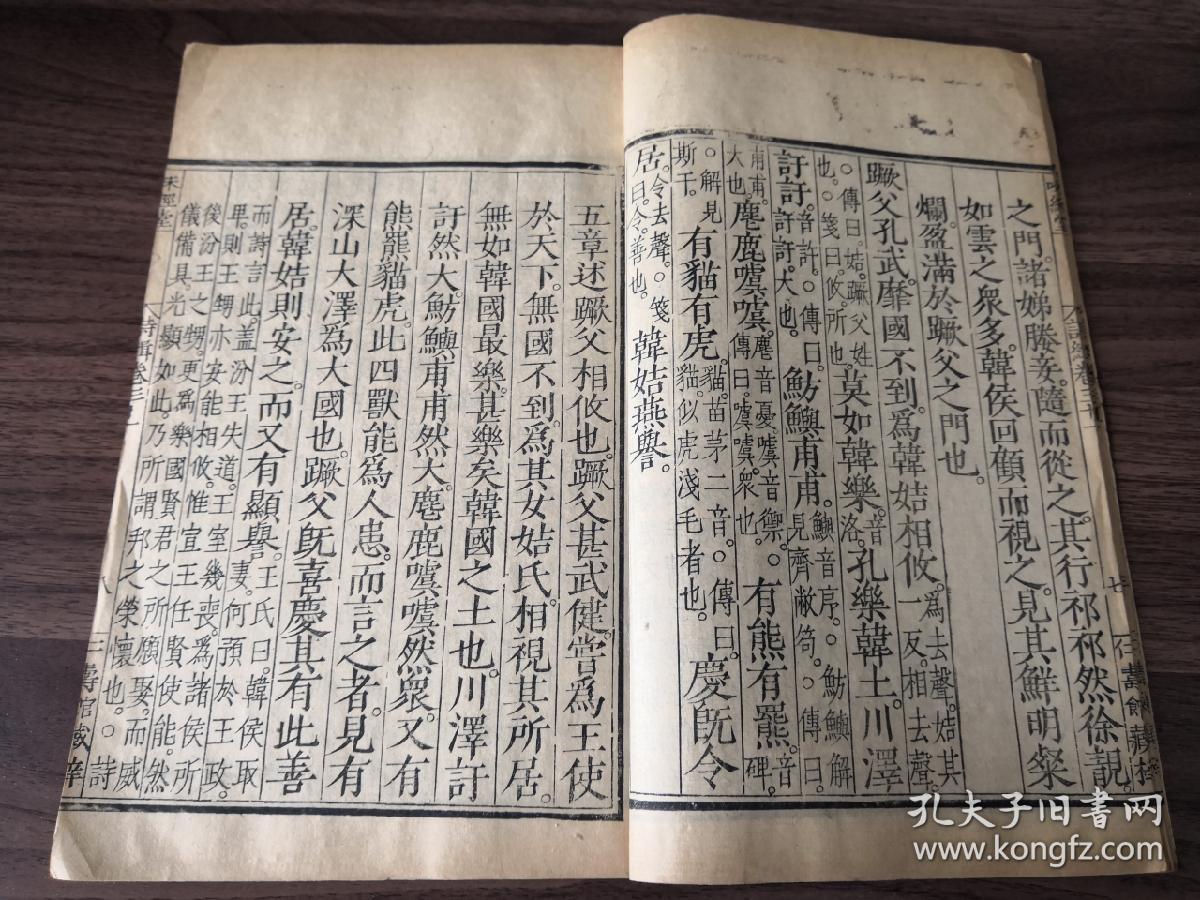 之門。諸娣媵妾。隨而從之。其行祁祁然徐靚。
如雲之衆多。韓侯回顧而視之。見其鮮明粲
爛。盈滿於蹶父之門也。
蹶父孔武。靡國不到。爲韓姞相攸。爲去聲。姞其一反。相去聲。
○傳曰。姞。蹶父姓也。○箋曰。攸。所也。莫如韓樂。音洛。孔樂韓土。川澤
訏訏。音許。○傳曰。訏訏。大也。魴鱮甫甫。鱮音序。○魴鱮解見齊敝笱。○傳曰。
甫甫。大也。麀鹿噳噳。麀音憂。噳音禦。○傳曰。噳噳。衆也。有熊有羆。音碑。
○解見斯干。有貓有虎。貓苗茅二音。○傳曰。貓。似虎淺毛者也。慶旣令
居。令去聲。○箋曰。令。善也。韓姞燕譽。
五章述蹶父相攸也。蹶父甚武健。嘗爲王使
於天下。無國不到。爲其女姞氏。相視其所居。
無如韓國最樂。甚樂矣韓國之土也。川澤訏
訏然大。魴鱮甫甫然大。麀鹿噳噳然衆。又有
熊羆貓虎。此四獸能爲人患。而言之者。見有
深山大澤爲大國也。蹶父旣喜慶其有此善
居。韓姞則安之。而又有顯譽。王氏曰。韓侯取妻。何預於王政。
而詩言此。蓋汾王失道。王室幾喪。爲諸侯所
卑。則王甥亦安能相攸。惟宣王任賢使能。然
後汾王之甥。更爲樂國賢君之所願娶。而威
儀備具。光顯如此。乃所謂邦之榮懷也。○詩
味經堂
詩緝卷三十一
八
三壽館藏梓